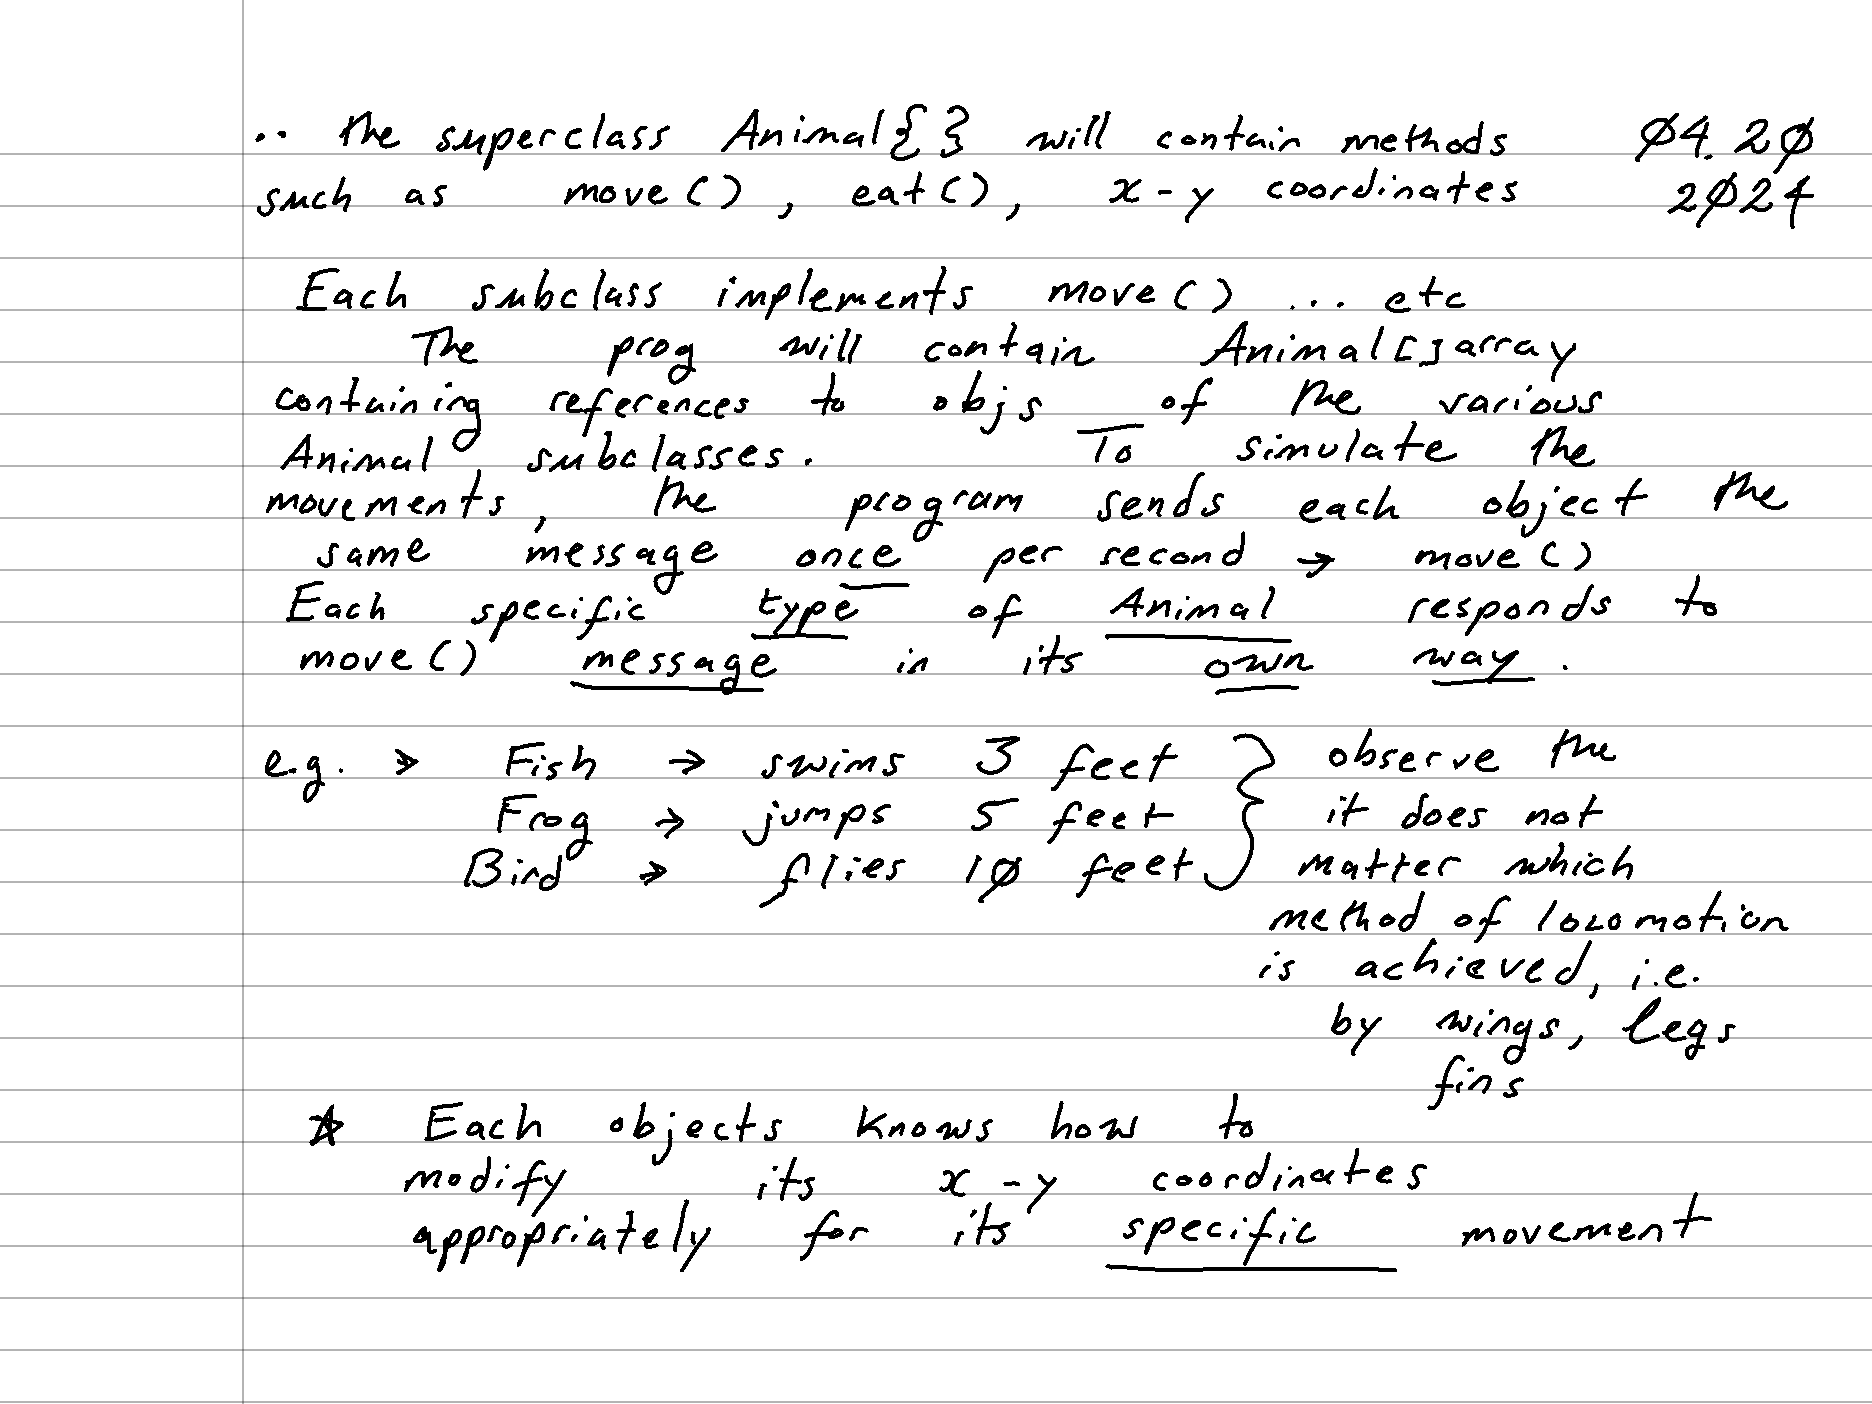 .. the superclass Animal{ } will contain methods Ø4. 2Ø
such as move ( ) , eat ( ) , x - y coordinates 2Ø24
Each subclass implements move ( ) ... etc
The prog will contain Animal [ ] array
containing references to objs of the various
Animal subclasses. To simulate the
movements, the program sends each object the
same message once per second → move ( )
Each specific type of Animal responds to
move ( ) message in its own way .
e.g. → Fish → swims 3 feet } observe the
Frog → jumps 5 feet it does not
Bird → flies 1Ø feet matter which
method of locomotion
is achieved, i.e.
by wings, legs
fins
☆ Each objects knows how to
modify its x - y coordinates
appropriately for its specific movement